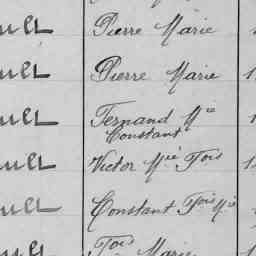 Pierre Marie
Pierre Marie
Fernand Mie
Constant
Victor Mie Fois
Constant Fois Mie
Fois Marie